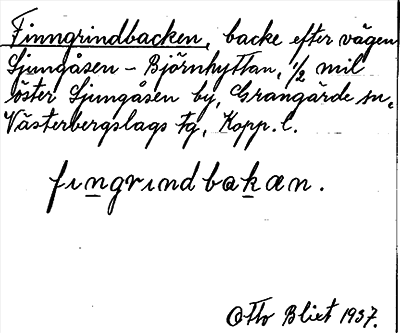 Finngrindbacken, backe efter vägen
Ljungåsen - Björnhyttan, 1/2 mil
öster Ljungåsen by, Grangärde sn,
Västerbergslags tg, Kopp. l.
fingrindbakan.
Otto Blixt 1937.